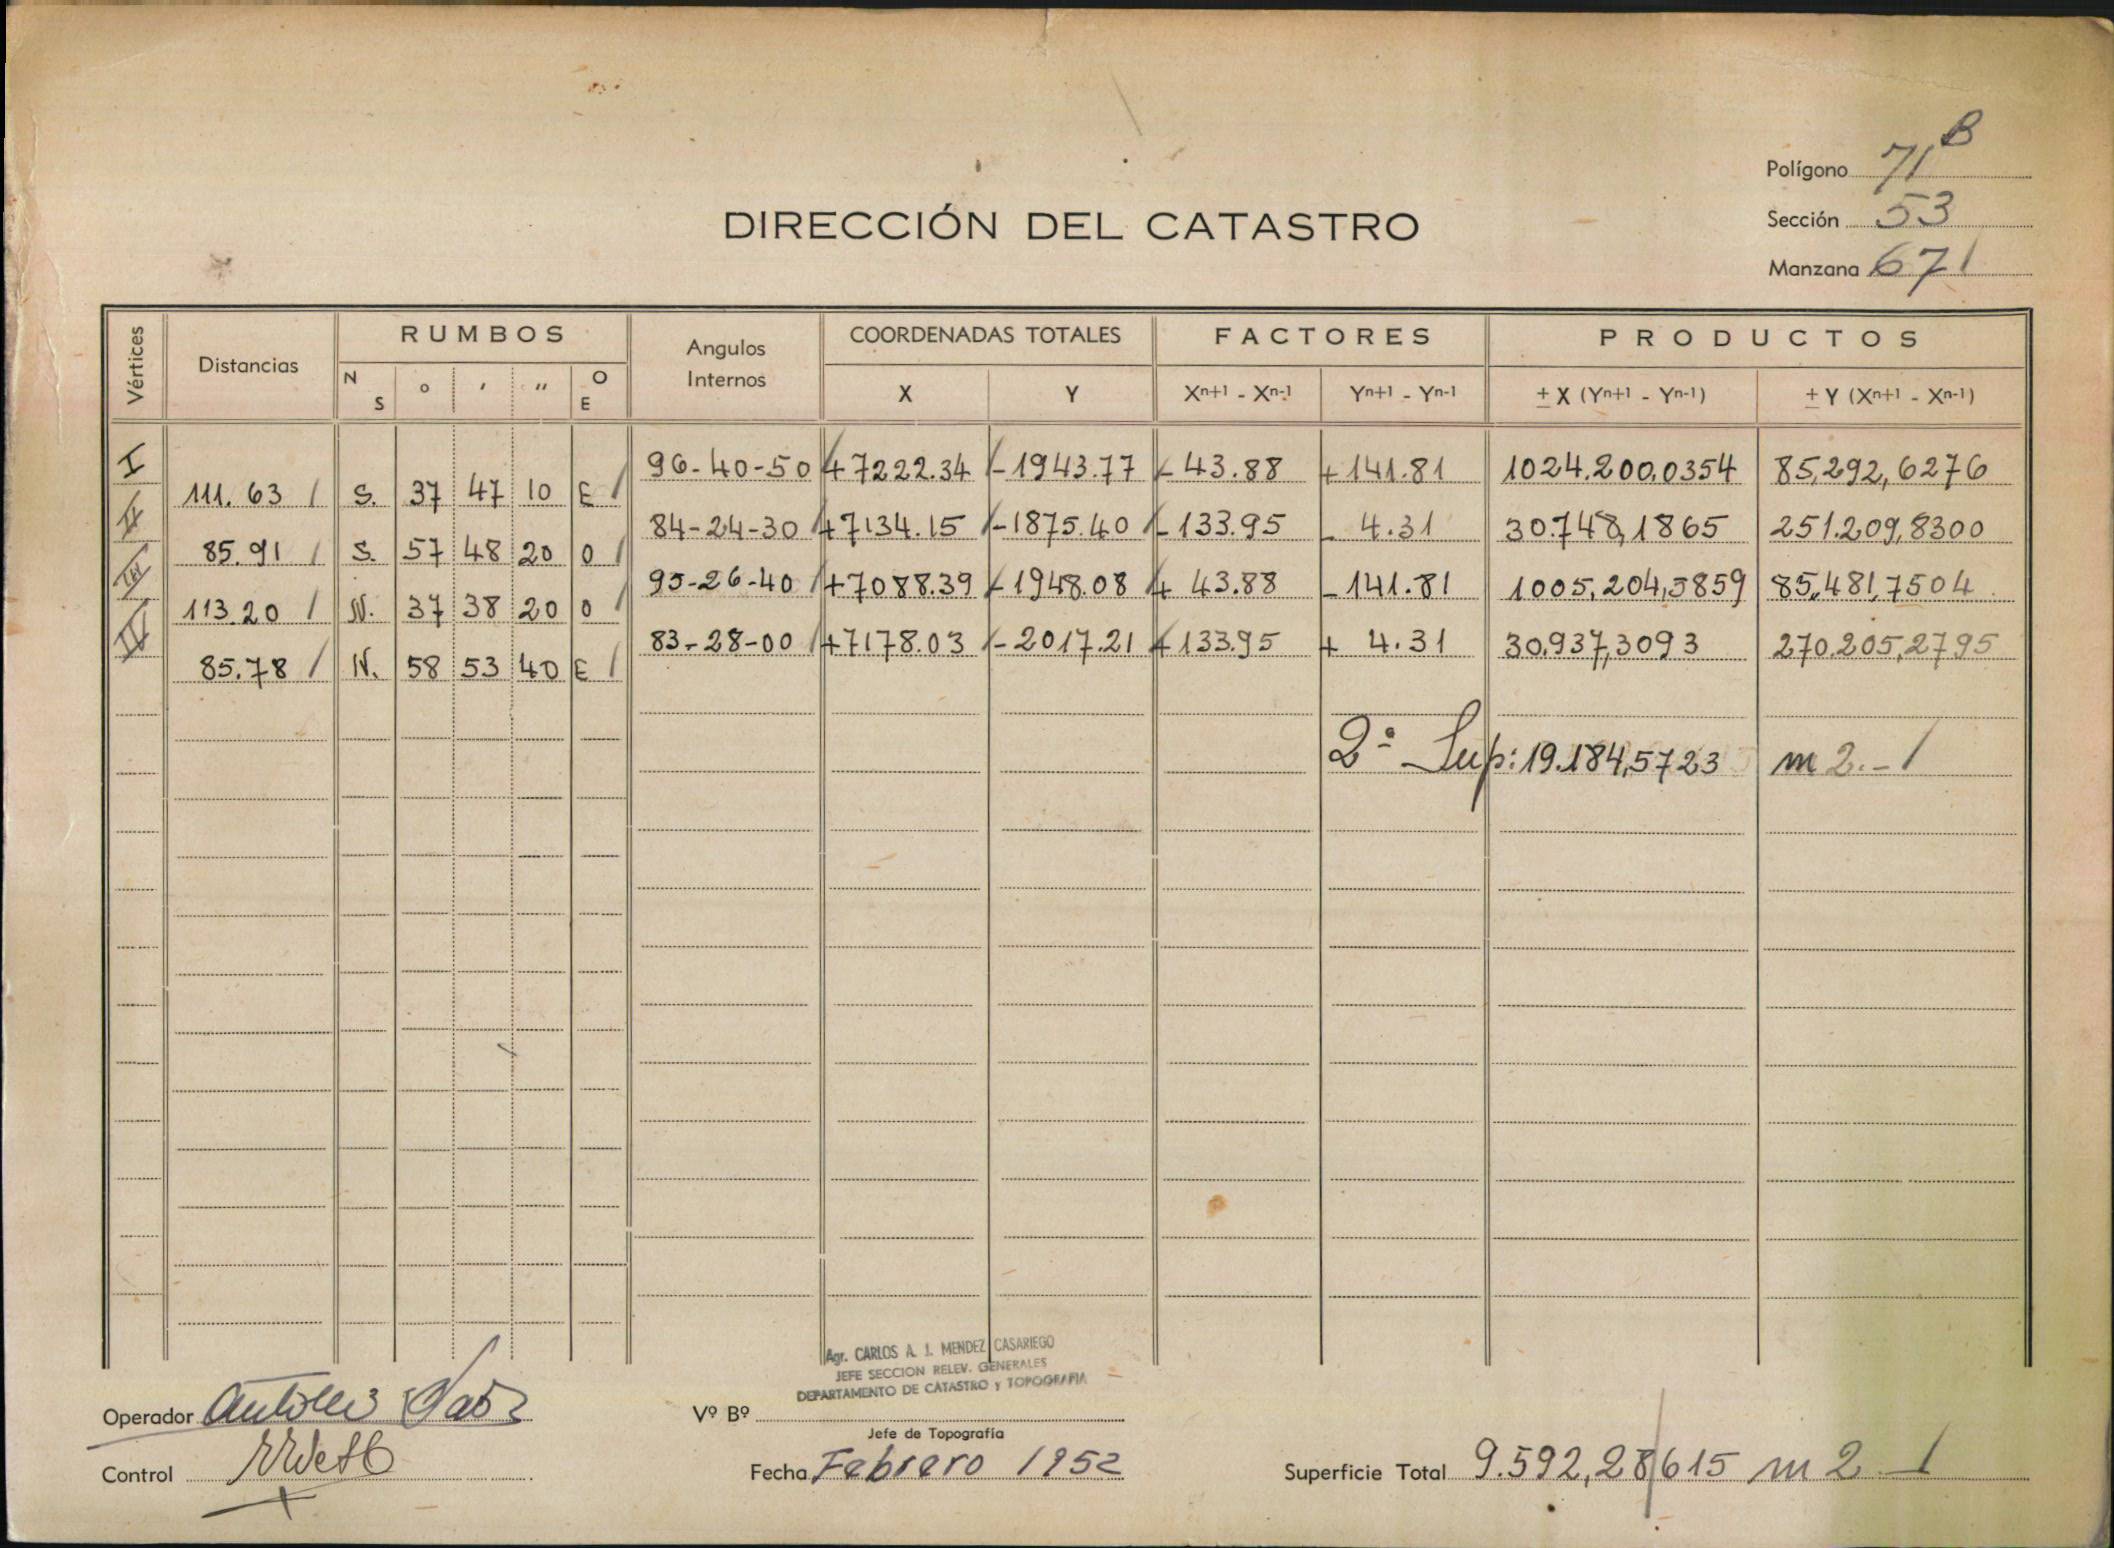 Polígono 71 B
DIRECCIÓN DEL CATASTRO
Sección 53
Manzana 671
Vértices Distancias RUMBOS Angulos Internos COORDENADAS TOTALES FACTORES PRODUCTOS
N S ° ′ ″ O E X Y Xn+1 - Xn-1 Yn+1 - Yn-1 ± X (Yn+1 - Yn-1) ± Y (Xn+1 - Xn-1)
I 96-40-50 +7222.34 -1943.77 - 43.88 +141.81 1024.200,0354 85,292,6276
111.63 S. 37 47 10 E
II 84-24-30 +7134.15 -1875.40 -133.95 - 4.31 30.748,1865 251.209,8300
85.91 S. 57 48 20 O
III 95-26-40 +7088.39 -1948.08 + 43.88 -141.81 1005,204,5859 85,481,7504
113.20 N. 37 38 20 O
IV 83-28-00 +7178.03 -2017.21 +133.95 + 4.31 30.937,3093 270.205,2795
85.78 N. 58 53 40 E
2ª Sup: 19.184,5723 m2.-
Agr. CARLOS A. J. MENDEZ CASARIEGO
JEFE SECCION RELEV. GENERALES
DEPARTAMENTO DE CATASTRO y TOPOGRAFIA
Operador
Vº Bº
Jefe de Topografía
Control
Fecha Febrero 1952
Superficie Total 9.592,28615 m2